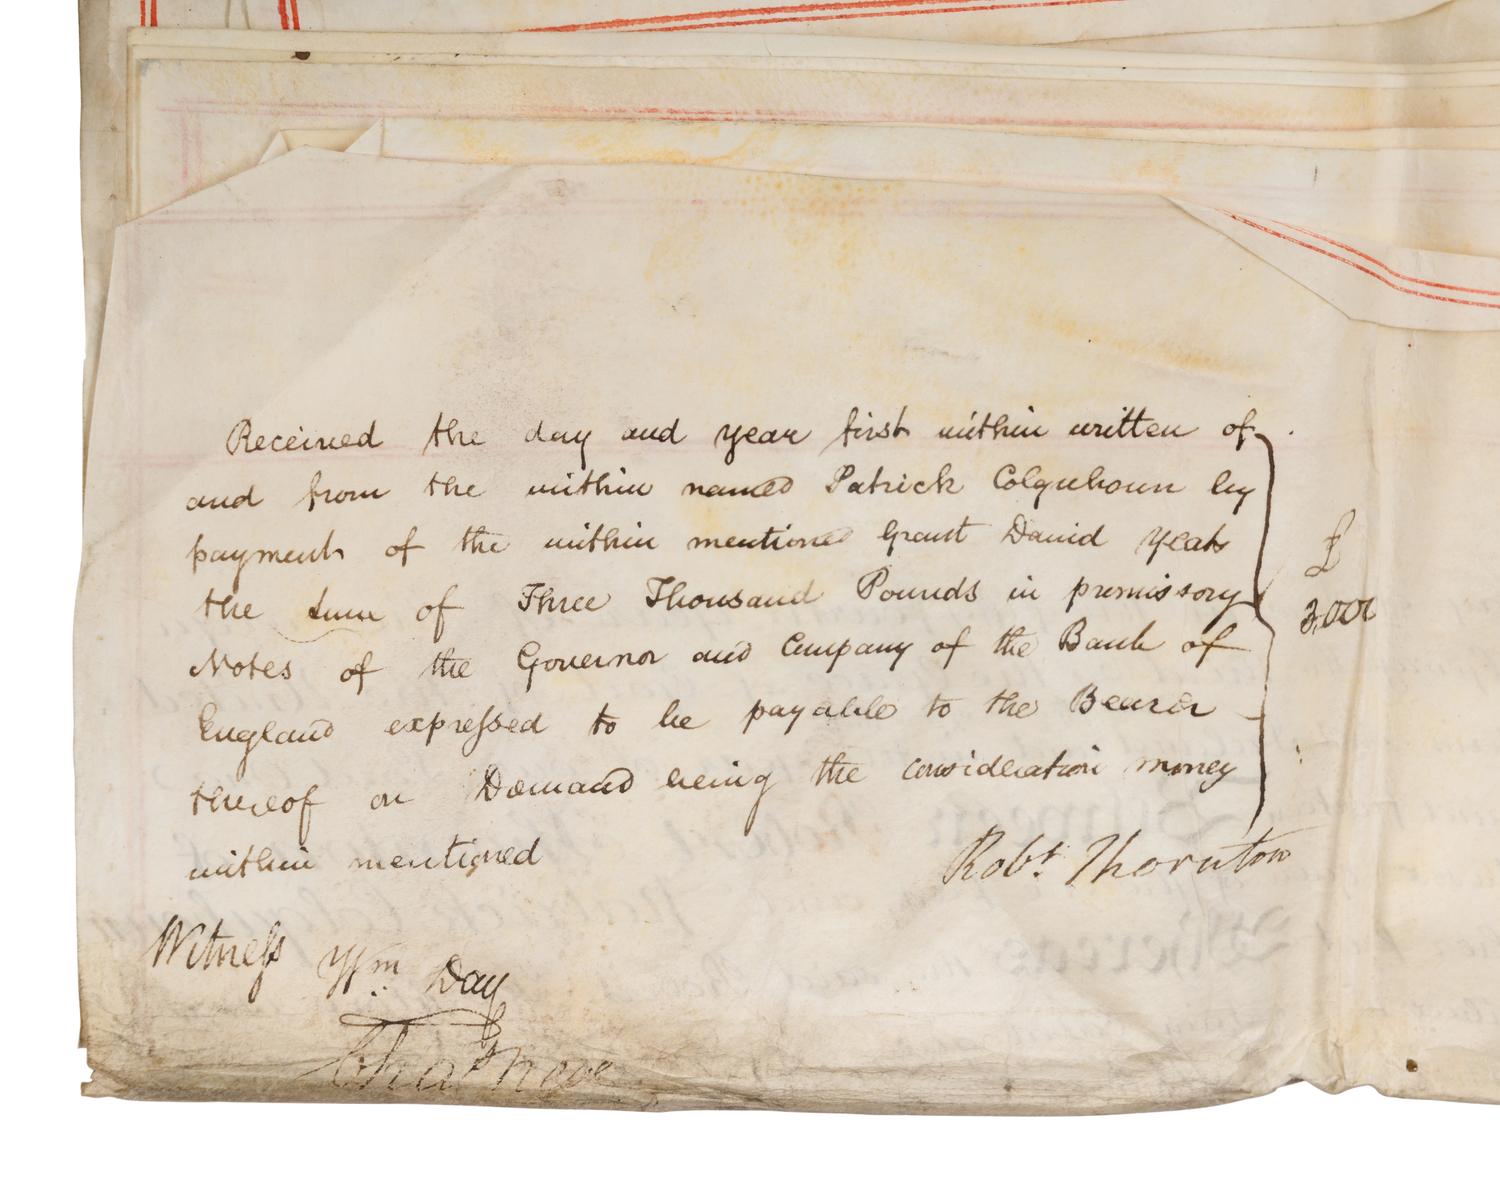 Received the day and year first within written of
and from the within named Patrick Colquhoun by
payment of the within mentioned Grant David Yeats
the sum of Three Thousand Pounds in promissory
Notes of the Governor and Company of the Bank of
England expressed to be payable to the Bearer
thereof on Demand being the consideration money
within mentioned
£
3,000
Robt. Thornton
Witness Wm. Day
Chas